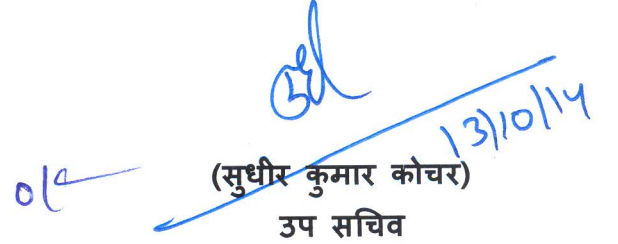 13/10/14
(सुधीर कुमार कोचर)
उप सचिव